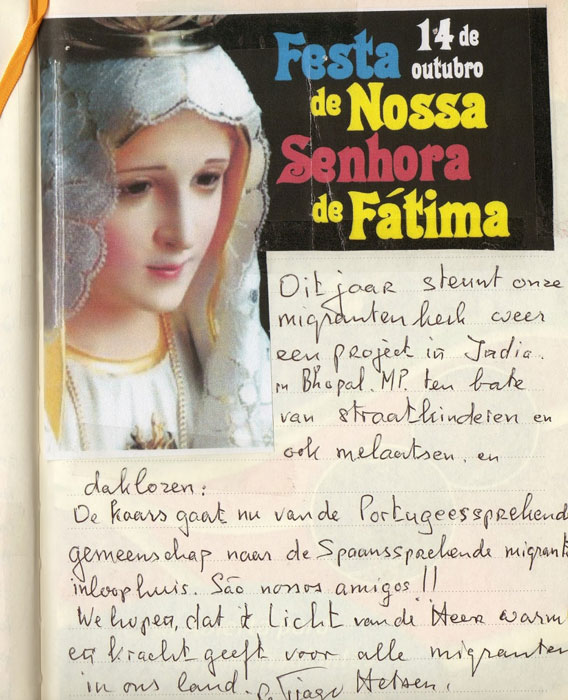 Festa 14 de outubro
de Nossa
Senhora
de Fátima
Dit jaar steunt onze
migrantenkerk weer
een project in India.
in Bhopal. MP. ten bate
van straatkinderen en
ook melaatsen. en
daklozen:
De kaars gaat nu van de Portugeessprekend
gemeenschap naar de Spaanssprekende migrant
inloophuis. São nossos amigos!!
We hopen, dat 't Licht van de Heer warm
en kracht geeft voor alle migranten
in ons land.